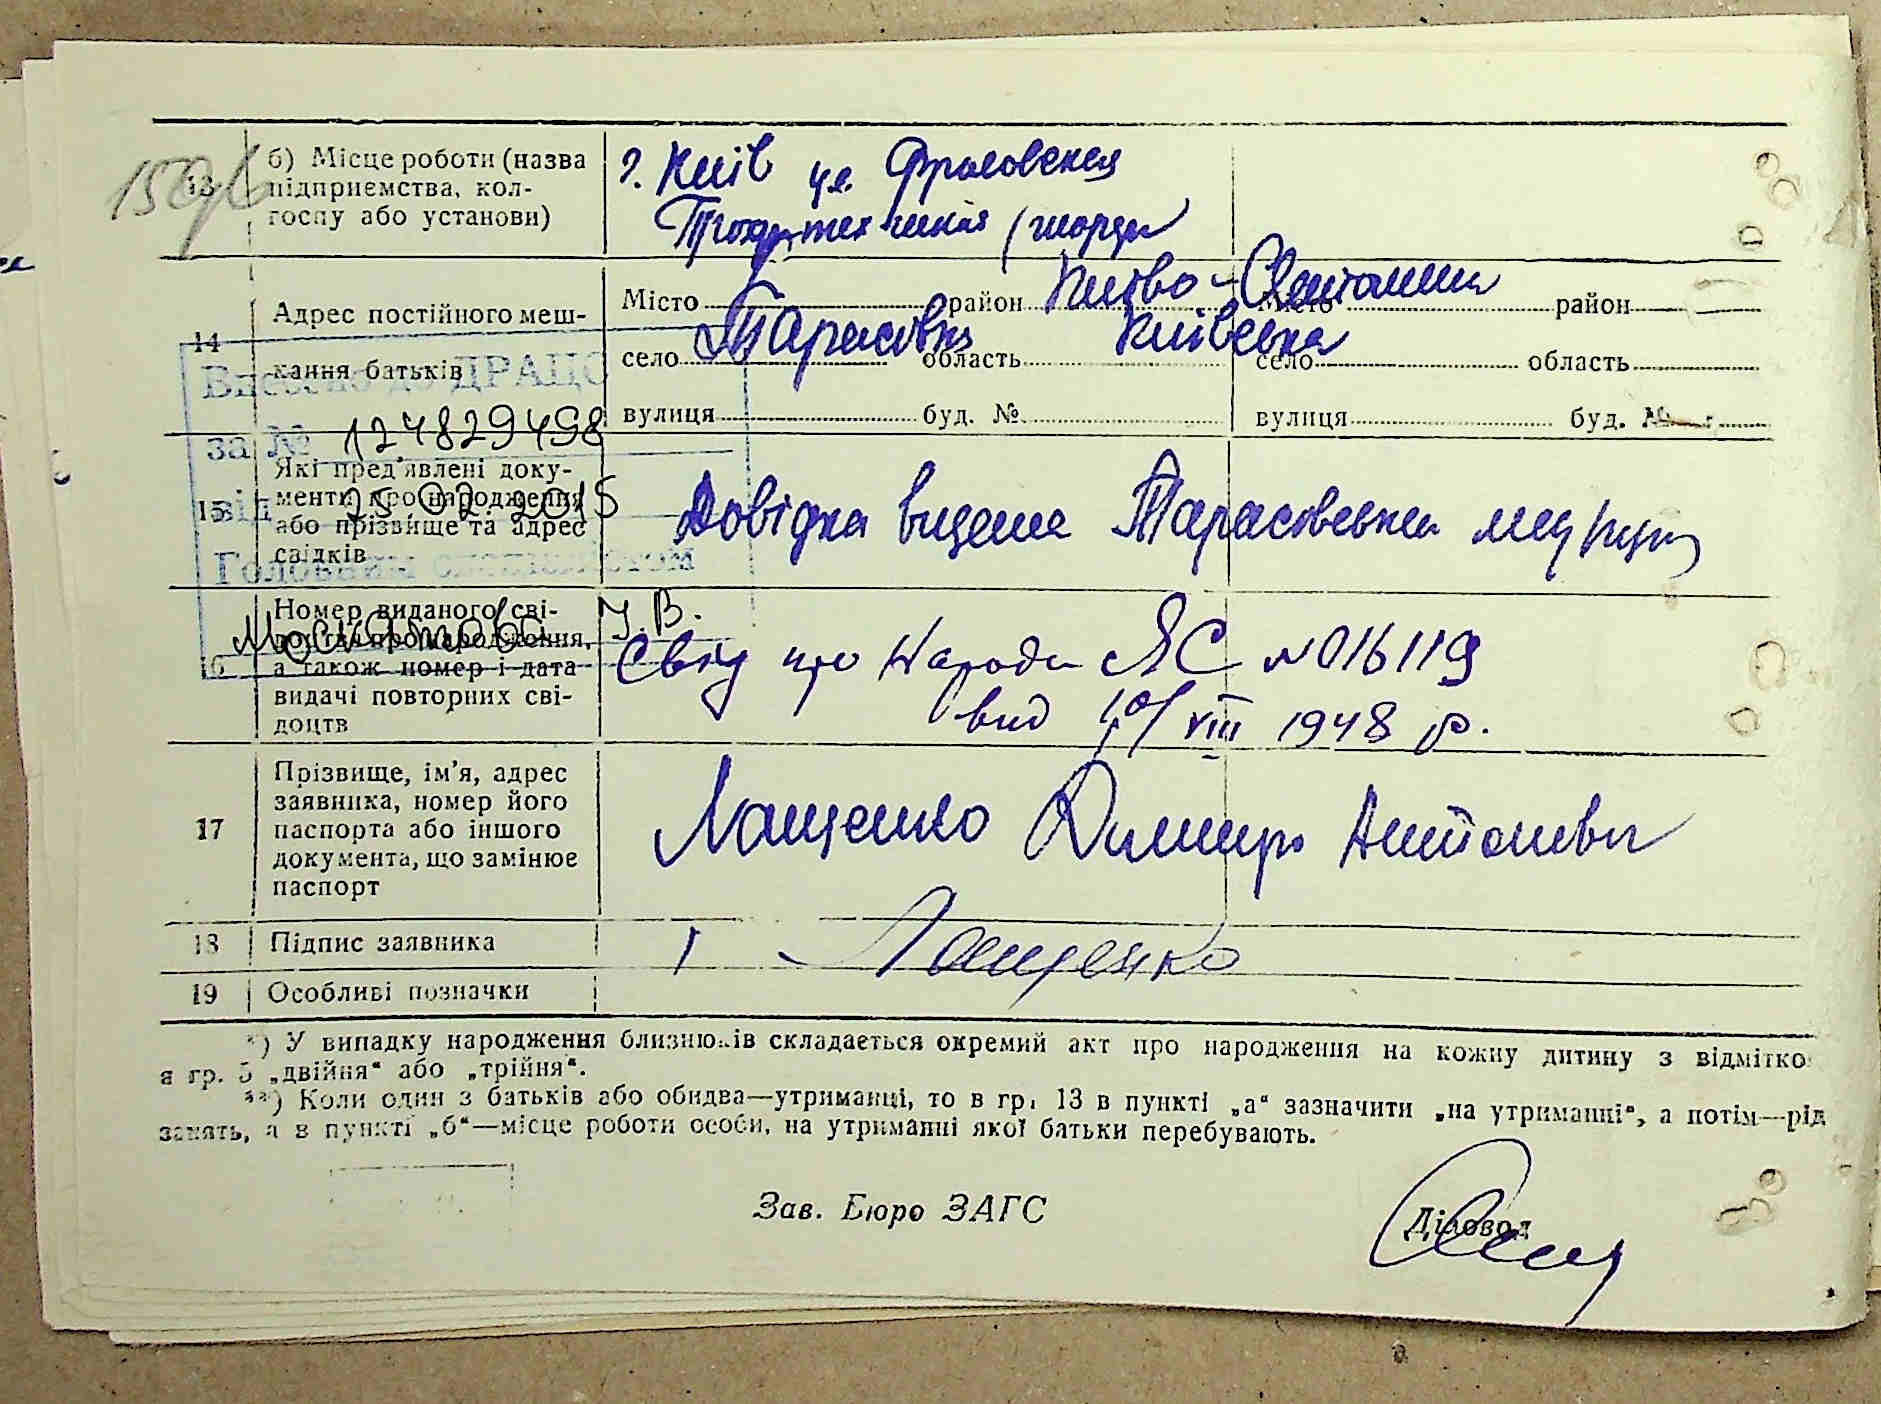 13 б) Місце роботи (назва підприємства, колгоспу або установи)
г. Київ ул. Фроловская
14 Адрес постійного мешкання батьків
Місто район Києво-Святошин Місто район
село Тарасовка область Київська село область
вулиця буд. № вулиця буд. №
Внесено до ДРАЦС
за № 124829498
від 25.02.2015
Головним спеціалістом
І.В.
15 Які пред'явлені документи про народження або прізвище та адрес свідків
Довідка видана Тарасовським
16 Номер виданого свідоцтва про народження, а також номер і дата видачі повторних свідоцтв
Свід про Народж ЯС №016119
вид 10/VIII 1948 р.
17 Прізвище, ім'я, адрес заявника, номер його паспорта або іншого документа, що замінює паспорт
Лащенко Димитро Антонович
18 Підпис заявника
Лащенко
19 Особливі позначки
*) У випадку народження близнюків складається окремий акт про народження на кожну дитину з відмітко
в гр. 5 „двійня“ або „трійня“.
**) Коли один з батьків або обидва—утриманці, то в гр. 13 в пункті „а“ зазначити „на утриманні“, а потім—рід
занять, а в пункті „б“—місце роботи особи, на утриманні якої батьки перебувають.
Зав. Бюро ЗАГС
Діловод